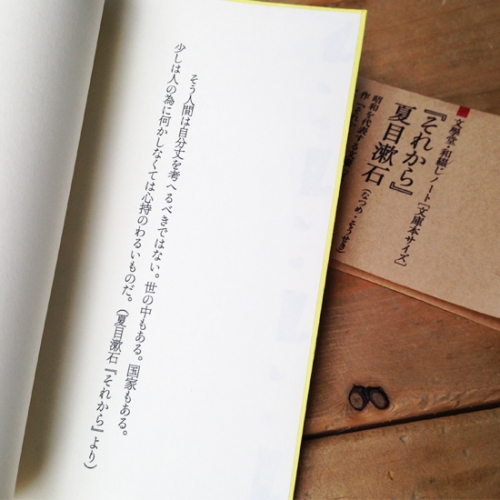 そう人間は自分丈を考へるべきではない。世の中もある。国家もある。
少しは人の為に何かしなくては心持のわるいものだ。(夏目漱石『それから』より)
文學堂・和綴じノート[文庫本サイズ]
『それから』
夏目漱石(なつめ・そうせき)
昭和を代表する文豪